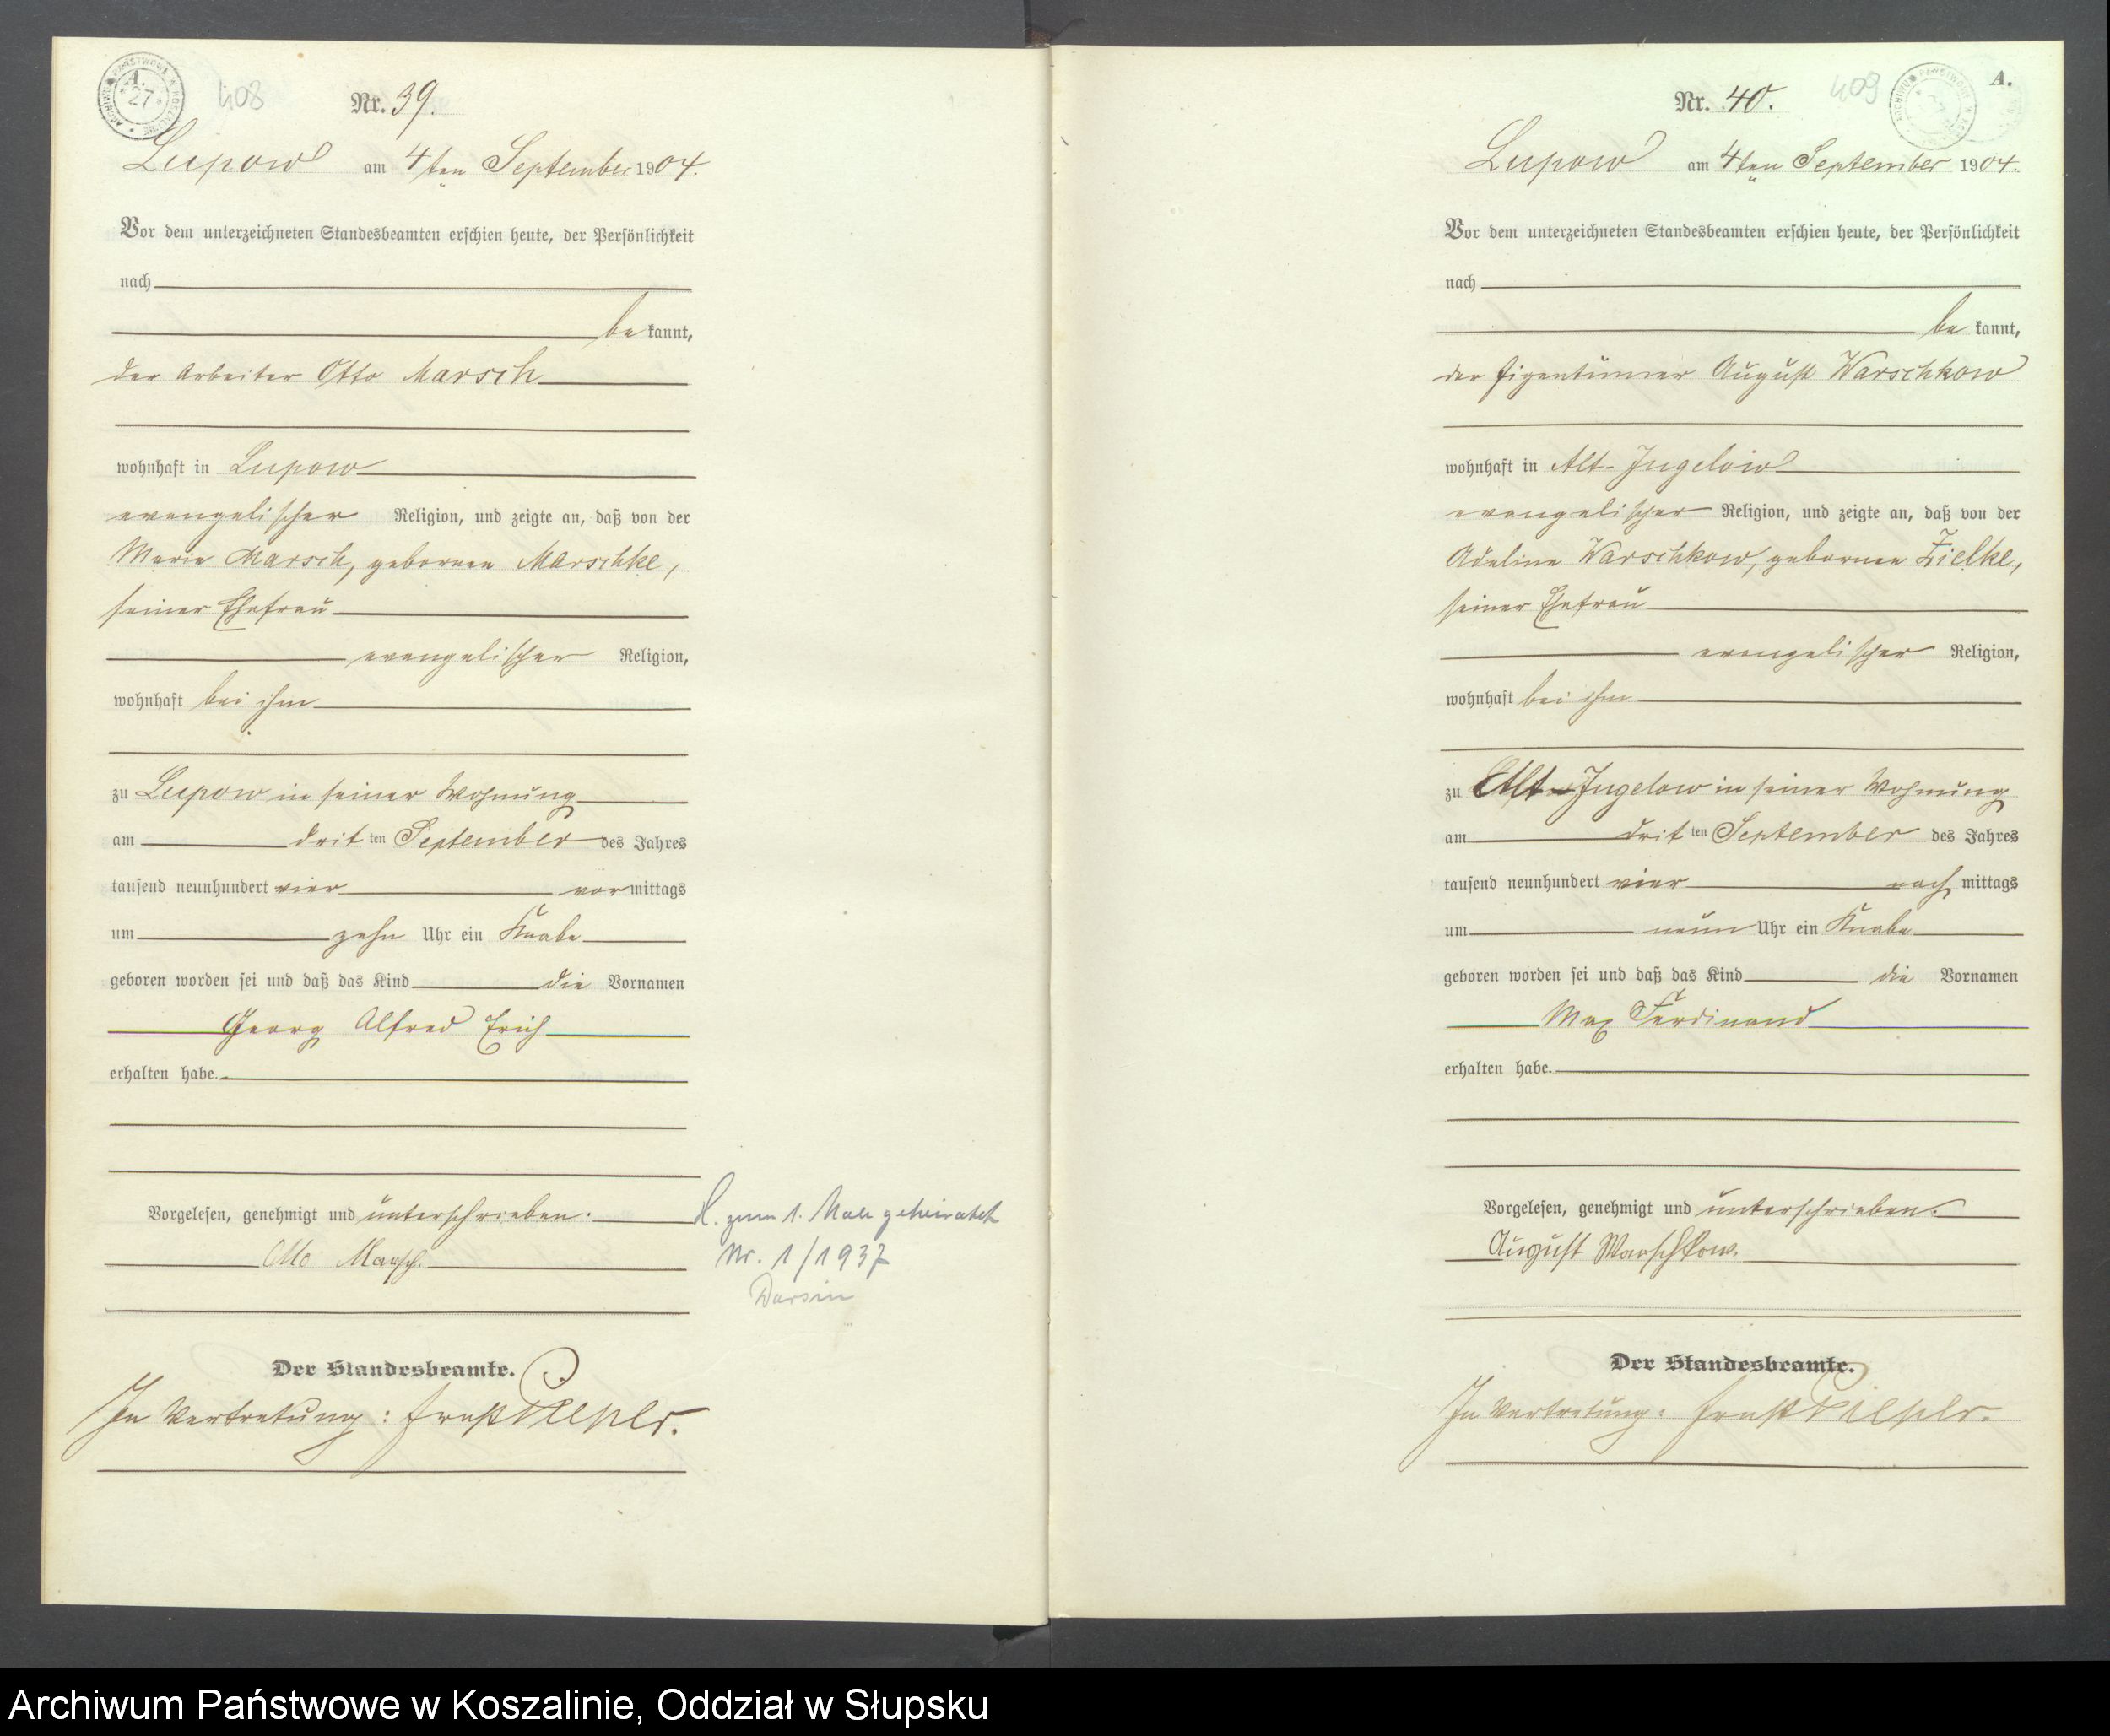 A.
27
ARCHIWUM PAŃSTWOWE W KOSZALINIE
408
Nr. 39.
Lupow am 4ten September 1904.
Vor dem unterzeichneten Standesbeamten erschien heute, der Persönlichkeit
nach
be kannt,
der Arbeiter Otto Marsch
wohnhaft in Lupow
evangelischer Religion, und zeigte an, daß von der
Marie Marsch, gebornen Marschke,
seiner Ehefrau
evangelischer Religion,
wohnhaft bei ihm
zu Lupow in seiner Wohnung
am drit ten September des Jahres
tausend neunhundert vier vor mittags
um zehn Uhr ein Knabe
geboren worden sei und daß das Kind die Vornamen
Georg Alfred Erich
erhalten habe.
Vorgelesen, genehmigt und unterschrieben.
Otto Marsch.
zum 1. Male geheiratet
Nr. 1/1937
Darsin
Der Standesbeamte.
In Vertretung: Ernst Piepler.
A.
409
Nr. 40.
Lupow am 4ten September 1904.
Vor dem unterzeichneten Standesbeamten erschien heute, der Persönlichkeit
nach
be kannt,
der Eigentümer August Warschkow
wohnhaft in Alt-Jugelow
evangelischer Religion, und zeigte an, daß von der
Adeline Warschkow, gebornen Zielke,
seiner Ehefrau
evangelischer Religion,
wohnhaft bei ihm
zu Alt-Jugelow in seiner Wohnung
am drit ten September des Jahres
tausend neunhundert vier nach mittags
um neun Uhr ein Knabe
geboren worden sei und daß das Kind die Vornamen
Max Ferdinand
erhalten habe.
Vorgelesen, genehmigt und unterschrieben.
August Warschkow.
Der Standesbeamte.
In Vertretung: Ernst Piepler.
Archiwum Państwowe w Koszalinie, Oddział w Słupsku